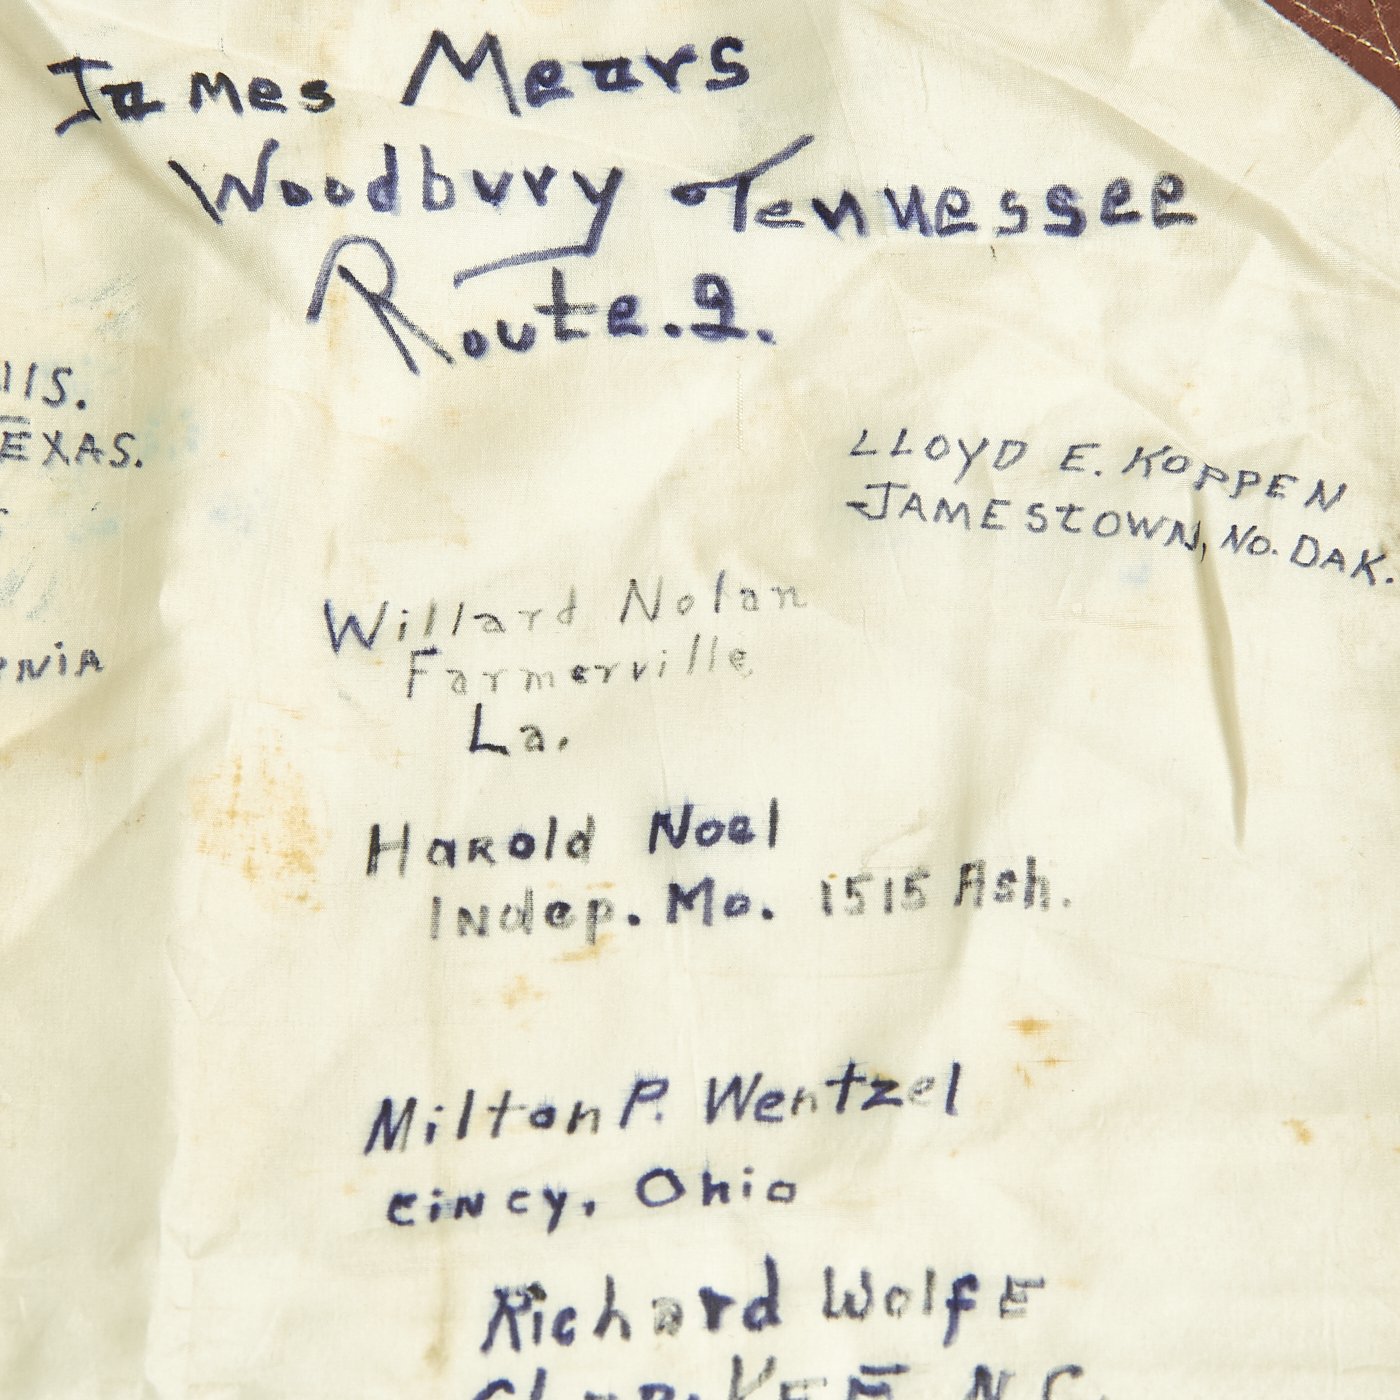 James Mears
Woodbury Tennessee
Route.2.
EXAS.
LLOYD E. KOPPEN
JAMESTOWN, NO. DAK.
Willard Nolan
Farmerville
La.
Harold Noel
Indep. Mo. 1515 Ash.
Milton P. Wentzel
cincy, Ohio
Richard WolfE
N.C.